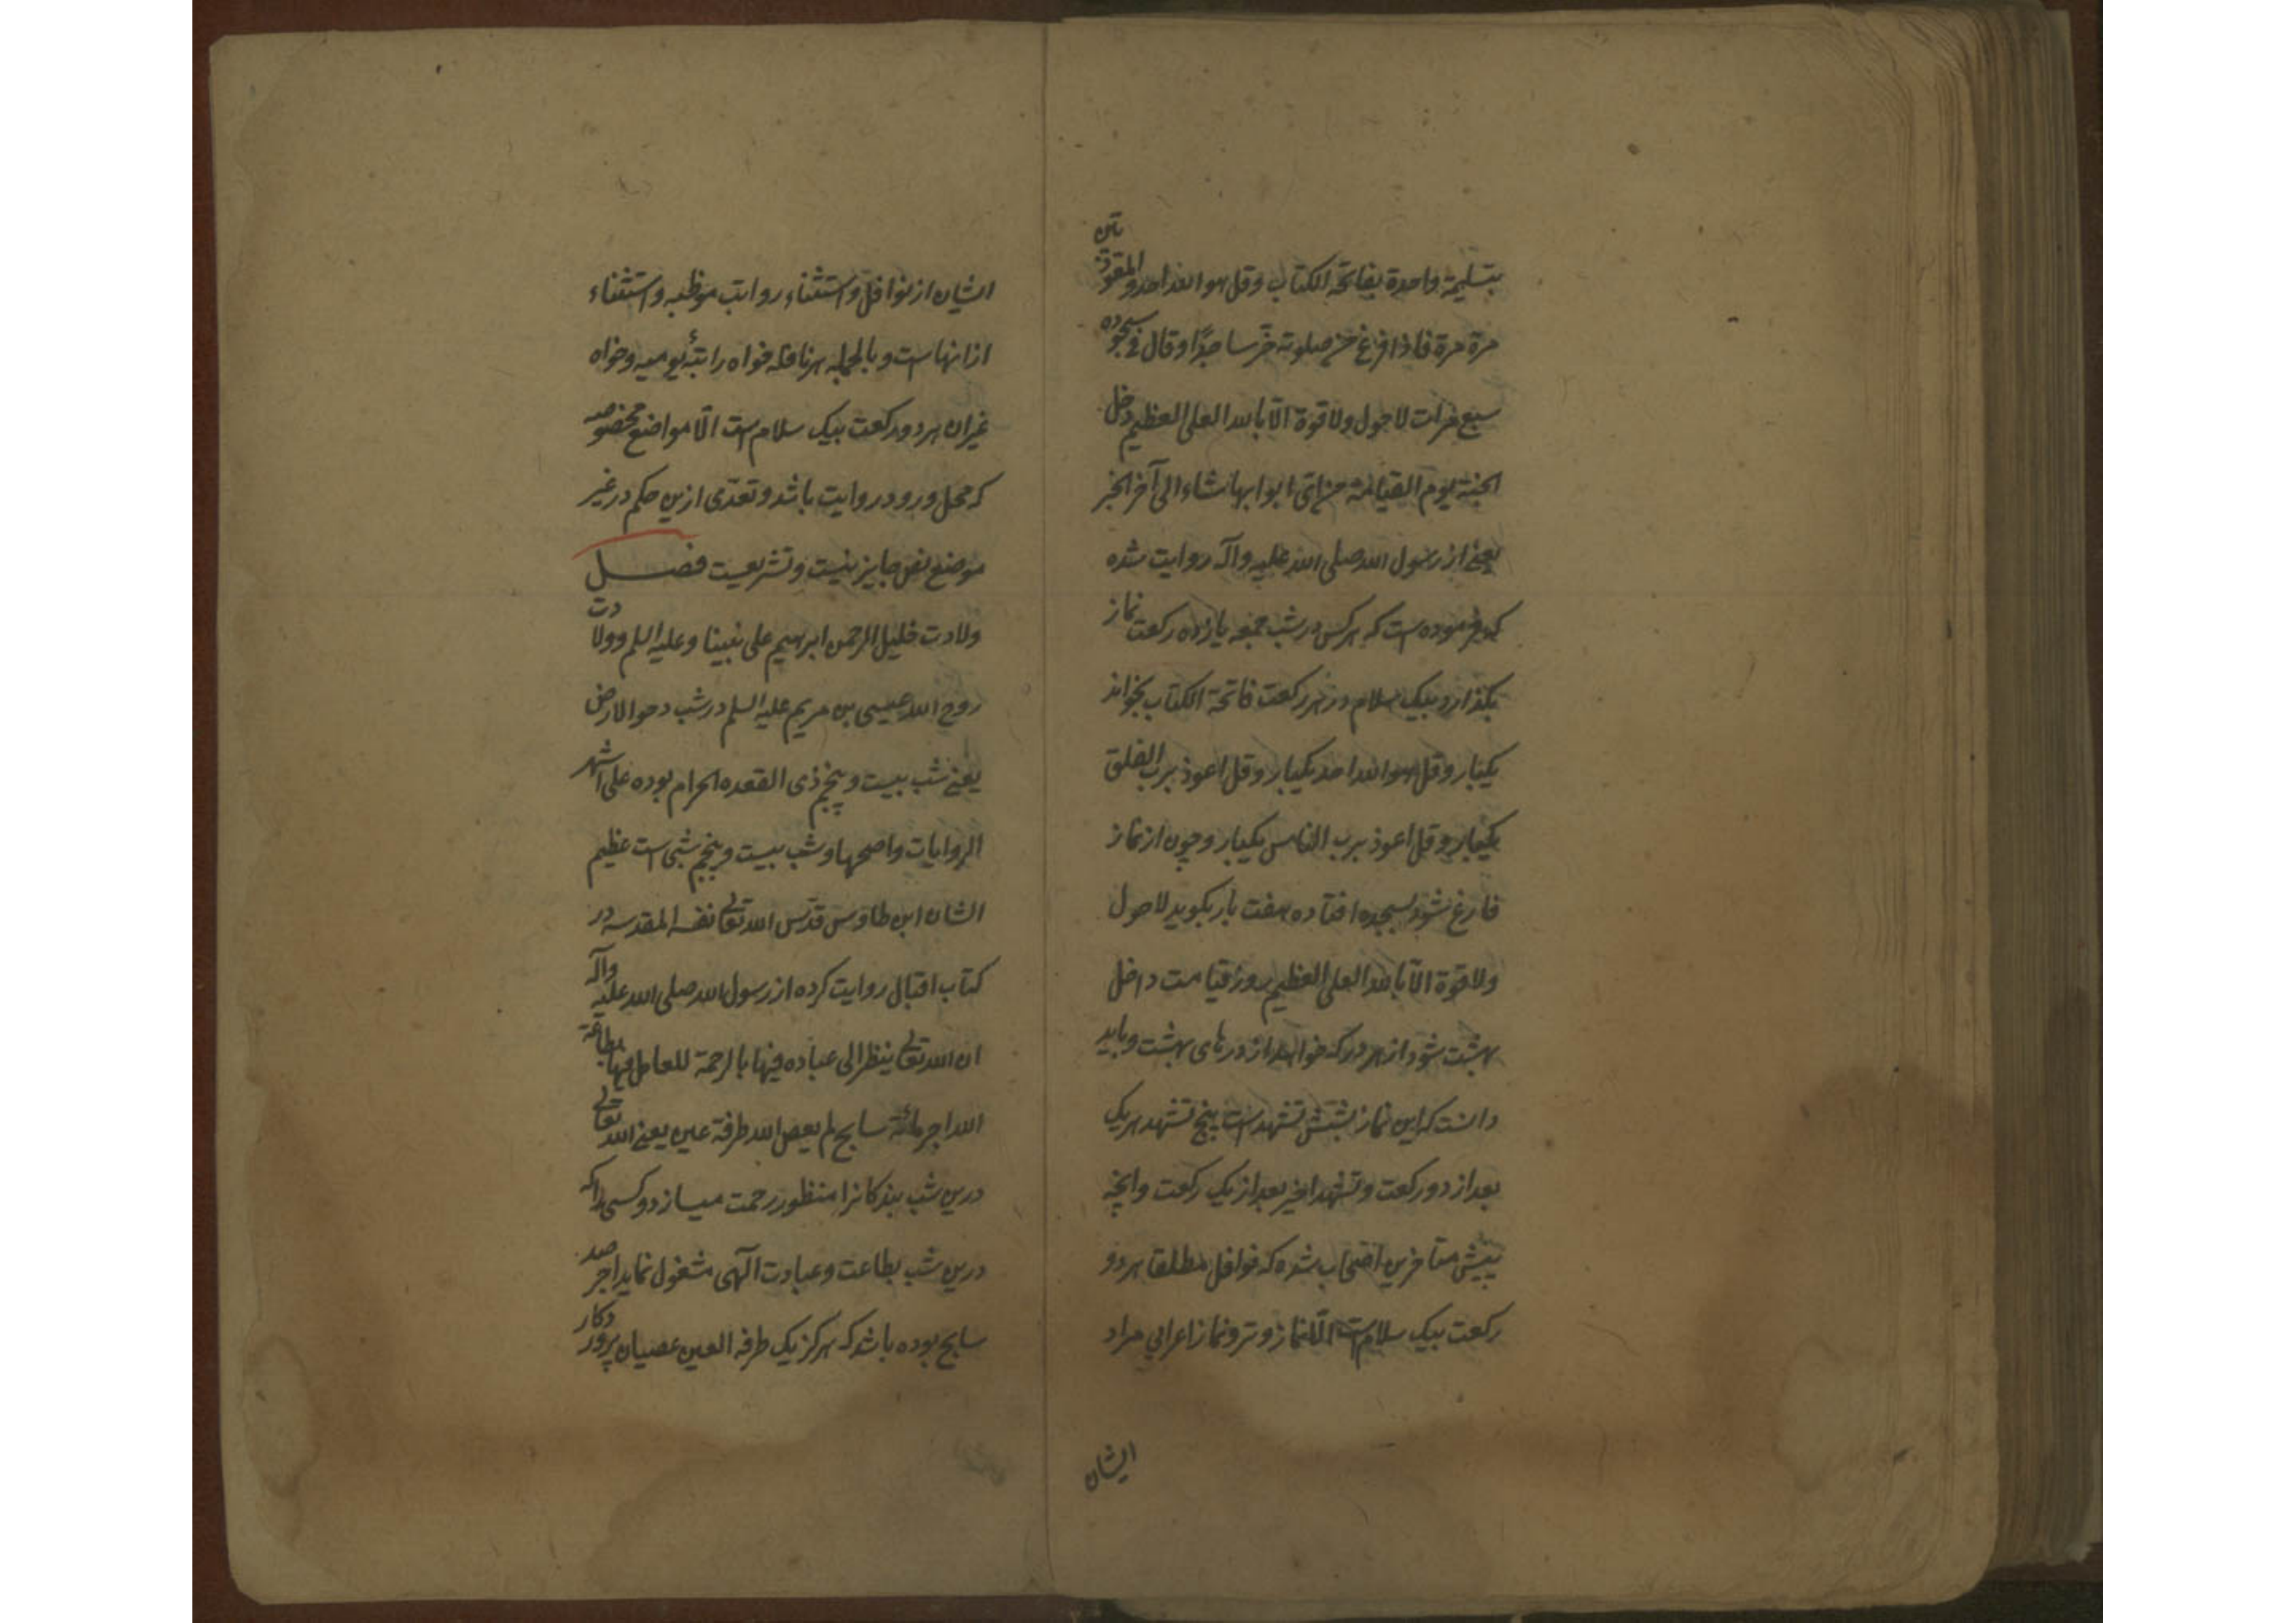 بتسلیمة واحدة بفاتحة الکتاب وقل هو الله احد والمعوذتین
مرة مرة فاذا فرغ من صلوته خرّ ساجدًا وقال فی سجوده
سبع مرات لا حول ولا قوة الّا بالله العلی العظیم دخل
الجنة یوم القیامة من ایّ ابوابها شاء الی آخر الخبر
یعنی از رسول الله صلی الله علیه وآله روایت شده
که فرموده است که هر کس در شب جمعه یازده رکعت نماز
بکذارد بیک سلام در هر رکعت فاتحة الکتاب بخواند
یکبار وقل هو الله احد یکبار وقل اعوذ برب الفلق
یکبار وقل اعوذ برب الناس یکبار وچون از نماز
فارغ شود بسجده افتاده هفت بار بکوید لا حول
ولا قوة الّا بالله العلی العظیم روز قیامت داخل
بهشت شود از هر در که خواهد از درهای بهشت وباید
دانست که این نماز بشش تشهد است پنج تشهد هر یک
بعد از دو رکعت وتشهد اخیر بعد از یک رکعت وآنچه
پیش متاخرین شده که نوافل مطلقا هر دو
رکعت بیک سلام است الّا نماز وتر ونماز اعرابی مراد
ایشان
ایشان از نوافل واستثناء رواتب موظفه واستثناء
از آنهاست وبالجمله هر نافله خواه راتبهٔ یومیه وخواه
غیر آن هر دو رکعت بیک سلام است الّا مواضع مخصوصه
که محل ورود روایت باشد وتعدّی ازین حکم در غیر
موضع نص جایز نیست وتشریعیست فصل
ولادت خلیل الرحمن ابرهیم علی نبینا وعلیه السلم وولادت
روح الله عیسی بن مریم علیه السلم در شب دحو الارض
یعنی شب بیست وپنجم ذی القعده الحرام بوده علی اشهر
الروایات واصحها وشب بیست وپنجم شبی است عظیم
الشان ابن طاوس قدّس الله تعالی نفسه المقدسه در
کتاب اقبال روایت کرده از رسول الله صلی الله علیه وآله
ان الله تعالی ینظر الی عباده فیها بالرحمة للعامل فیها بطاعة
الله اجر مائة سایح لم یعص الله طرفة عین یعنی الله تعالی
درین شب بندکانرا منظور رحمت میسازد وکسی را که
درین شب بطاعت وعبادت الهی مشغول نماید اجر صد
سایح بوده باشد که هرکز یک طرفه العین عصیان پروردکار